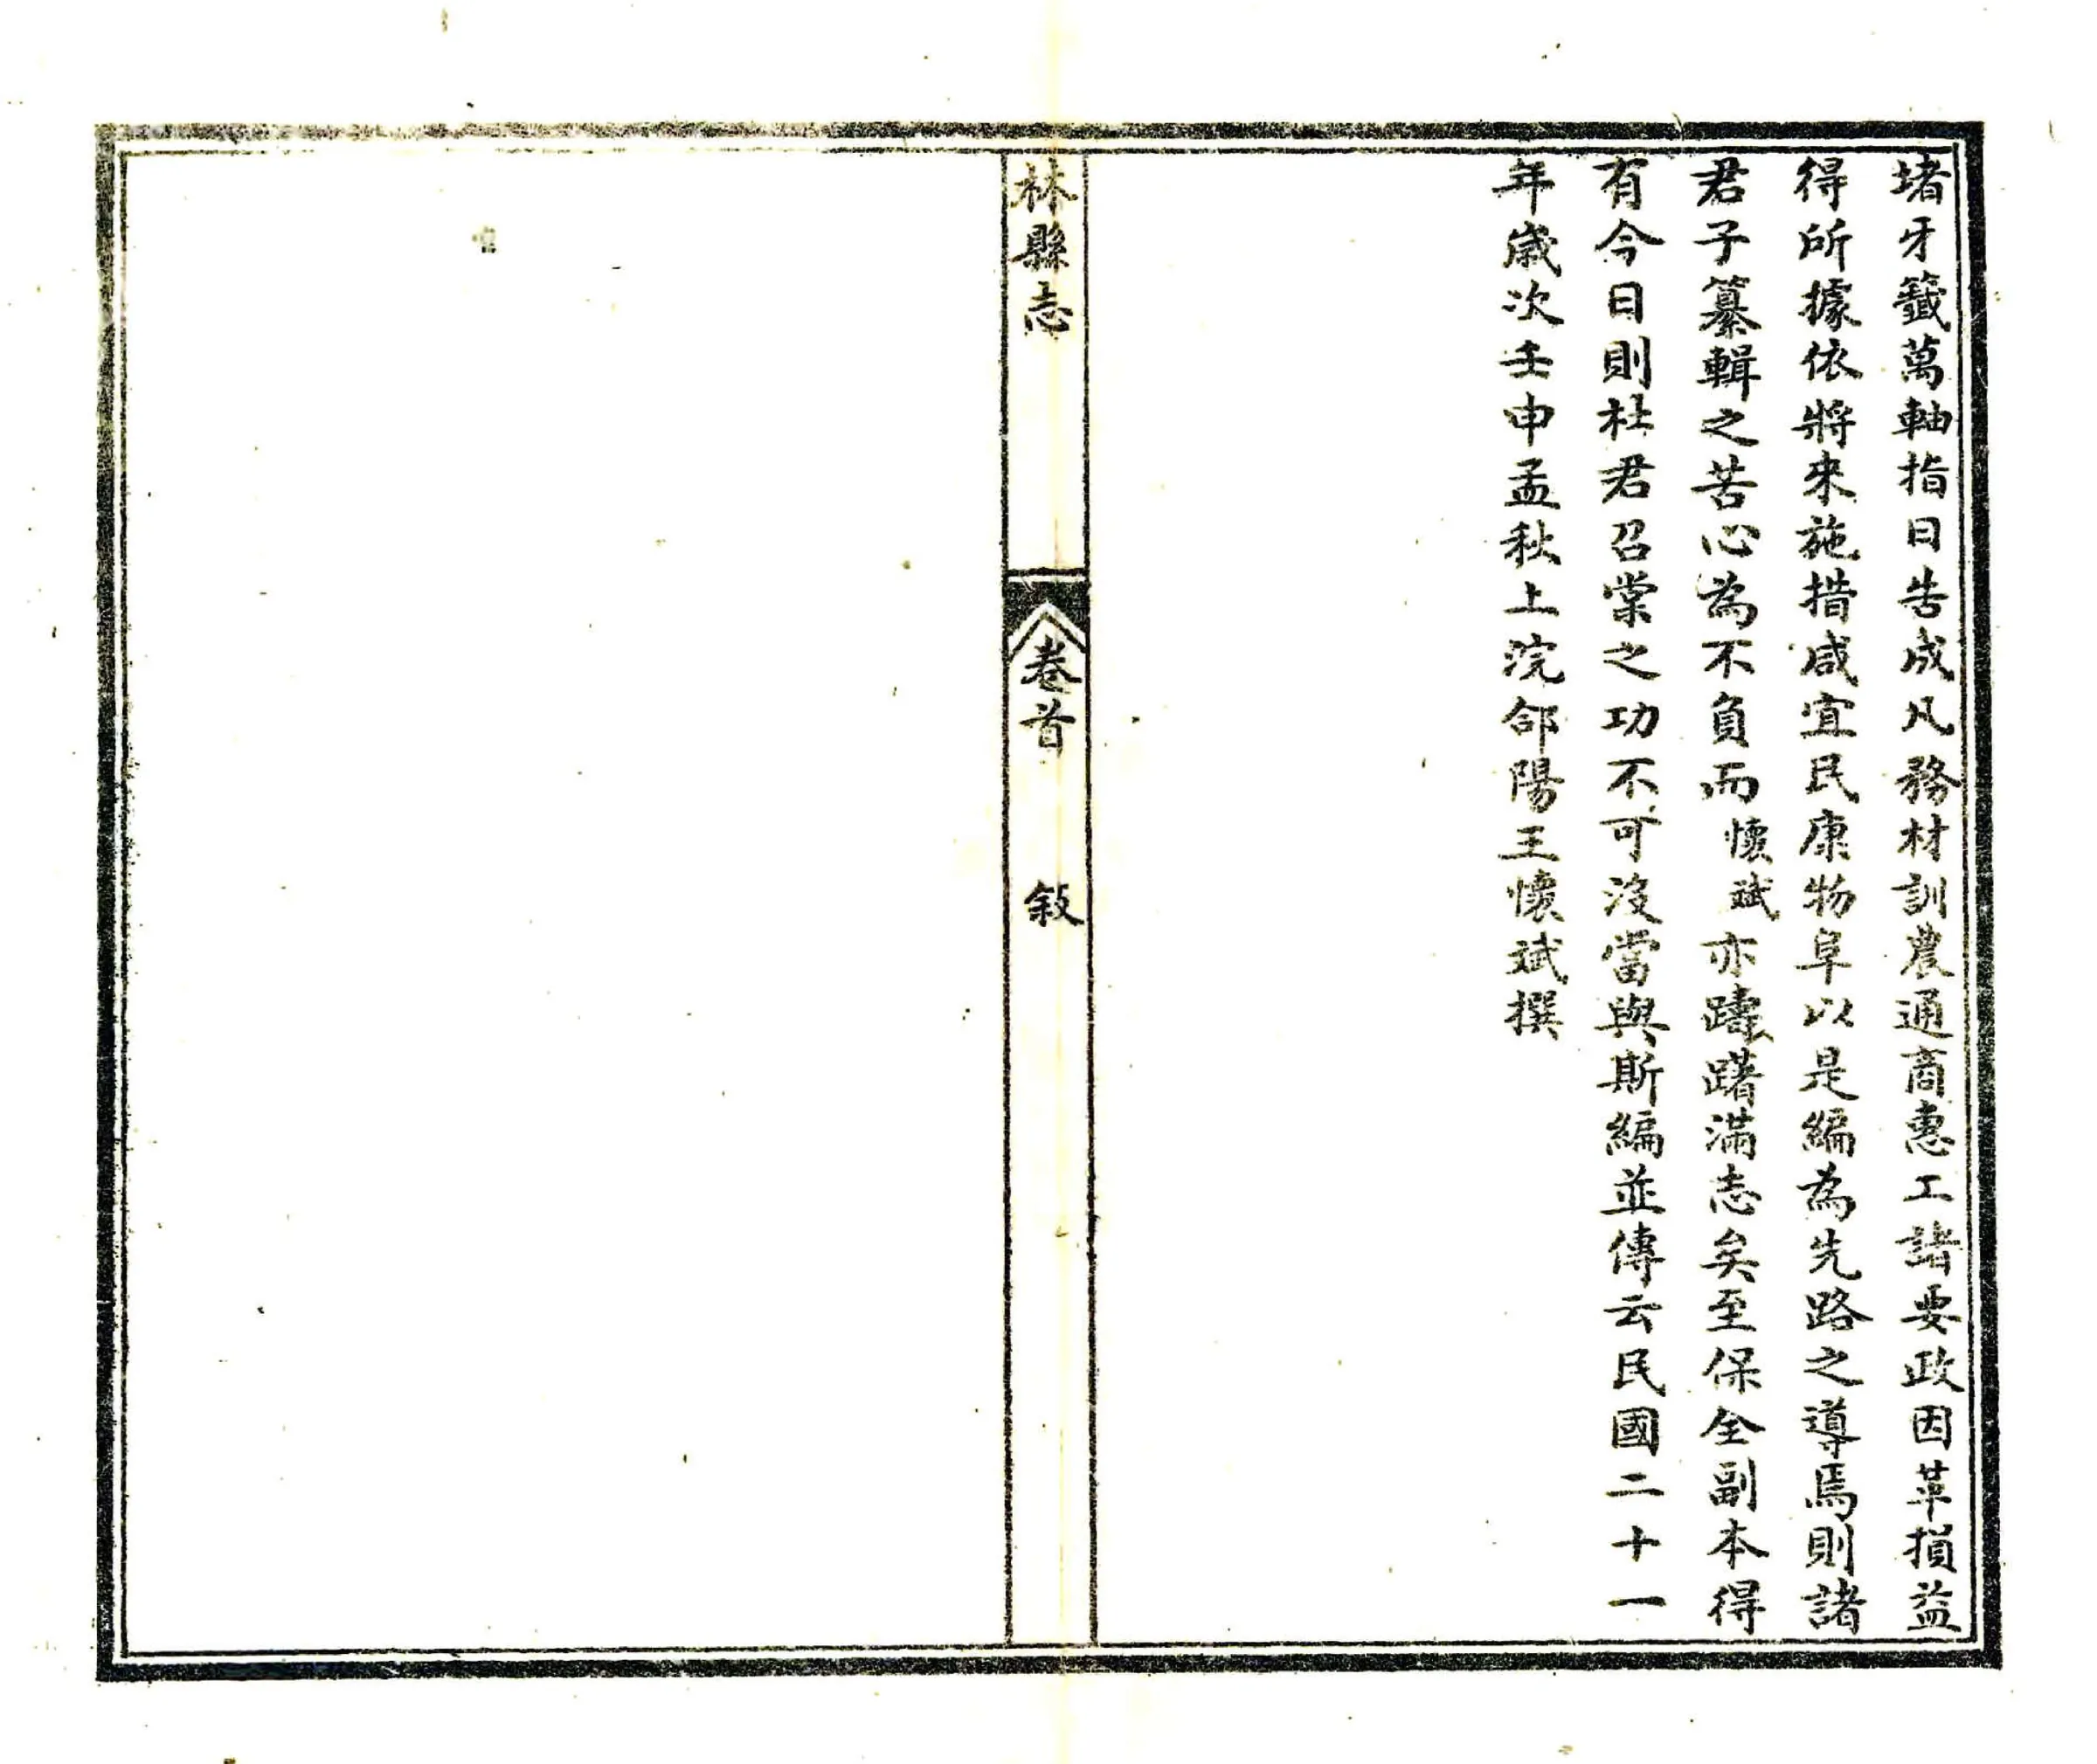 堵牙籤萬軸指日告成凡務材訓農通商惠工諸要政因革損益
得所據依將來施措咸宜民康物阜以是編為先路之導焉則諸
君子纂輯之苦心為不負而懷斌亦躊躇滿志矣至保全副本得
有今日則杜君召棠之功不可沒當與斯編並傳云民國二十一
年歲次壬申孟秋上浣郃陽王懷斌撰
林縣志
卷首
敍